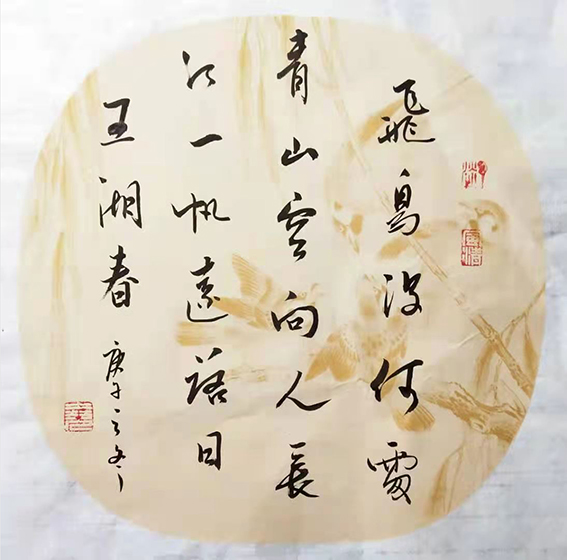 飛鳥没何處
青山空向人長
江一帆遠落日
五湖春
庚子之冬